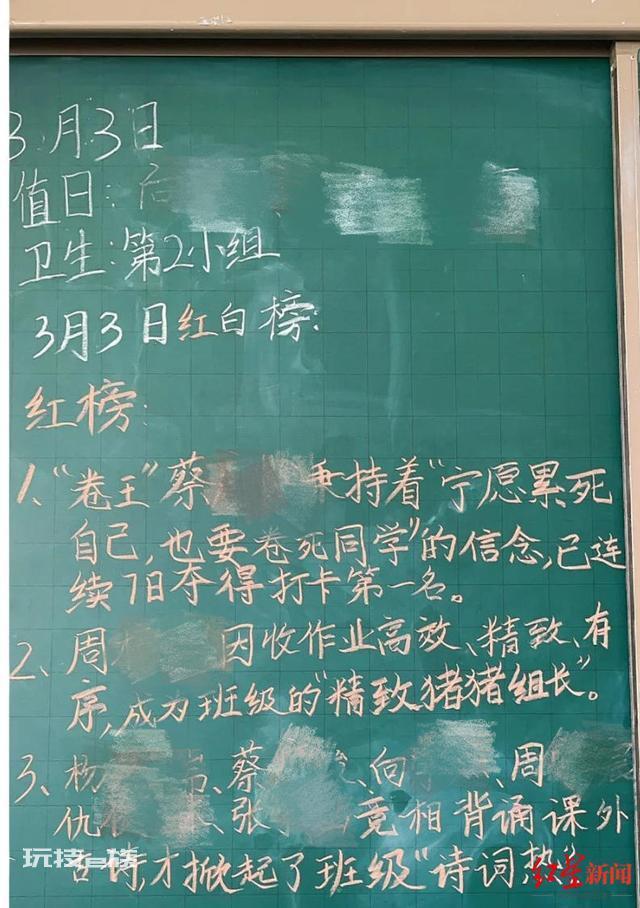 3月3日
值日:
卫生:第2小组
3月3日红白榜:
红榜:
1、“卷王”蔡 秉持着“宁愿累死
自己,也要卷死同学”的信念,已连
续7日夺得打卡第一名。
2、周 因收作业高效、精致、有
序,成为班级的“精致猪猪组长”。
3、杨 、蔡 、向 、周
仇 、张 竞相背诵课外
古诗,才掀起了班级“诗词热”
玩技e族
红星新闻